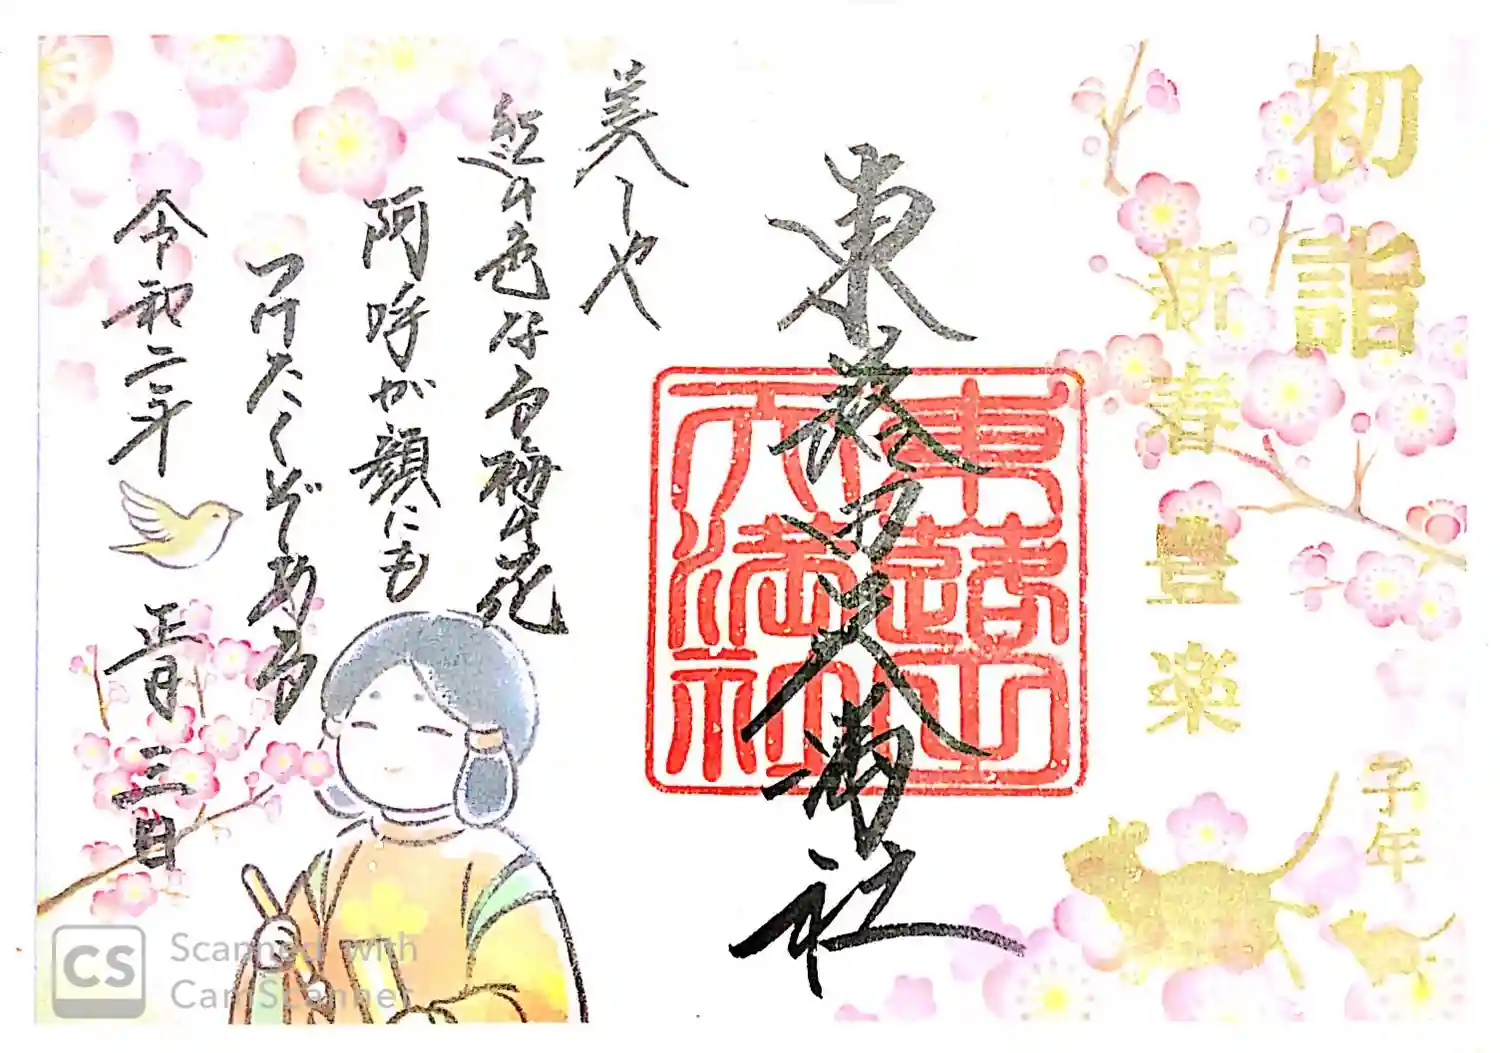 初詣
新春豊楽
子年
東蕗田天満社
美しや
紅の色なる梅の花
阿呼が顔にも
つけたくぞある
令和二年 正月三日
CS Scanned with
CamScanner